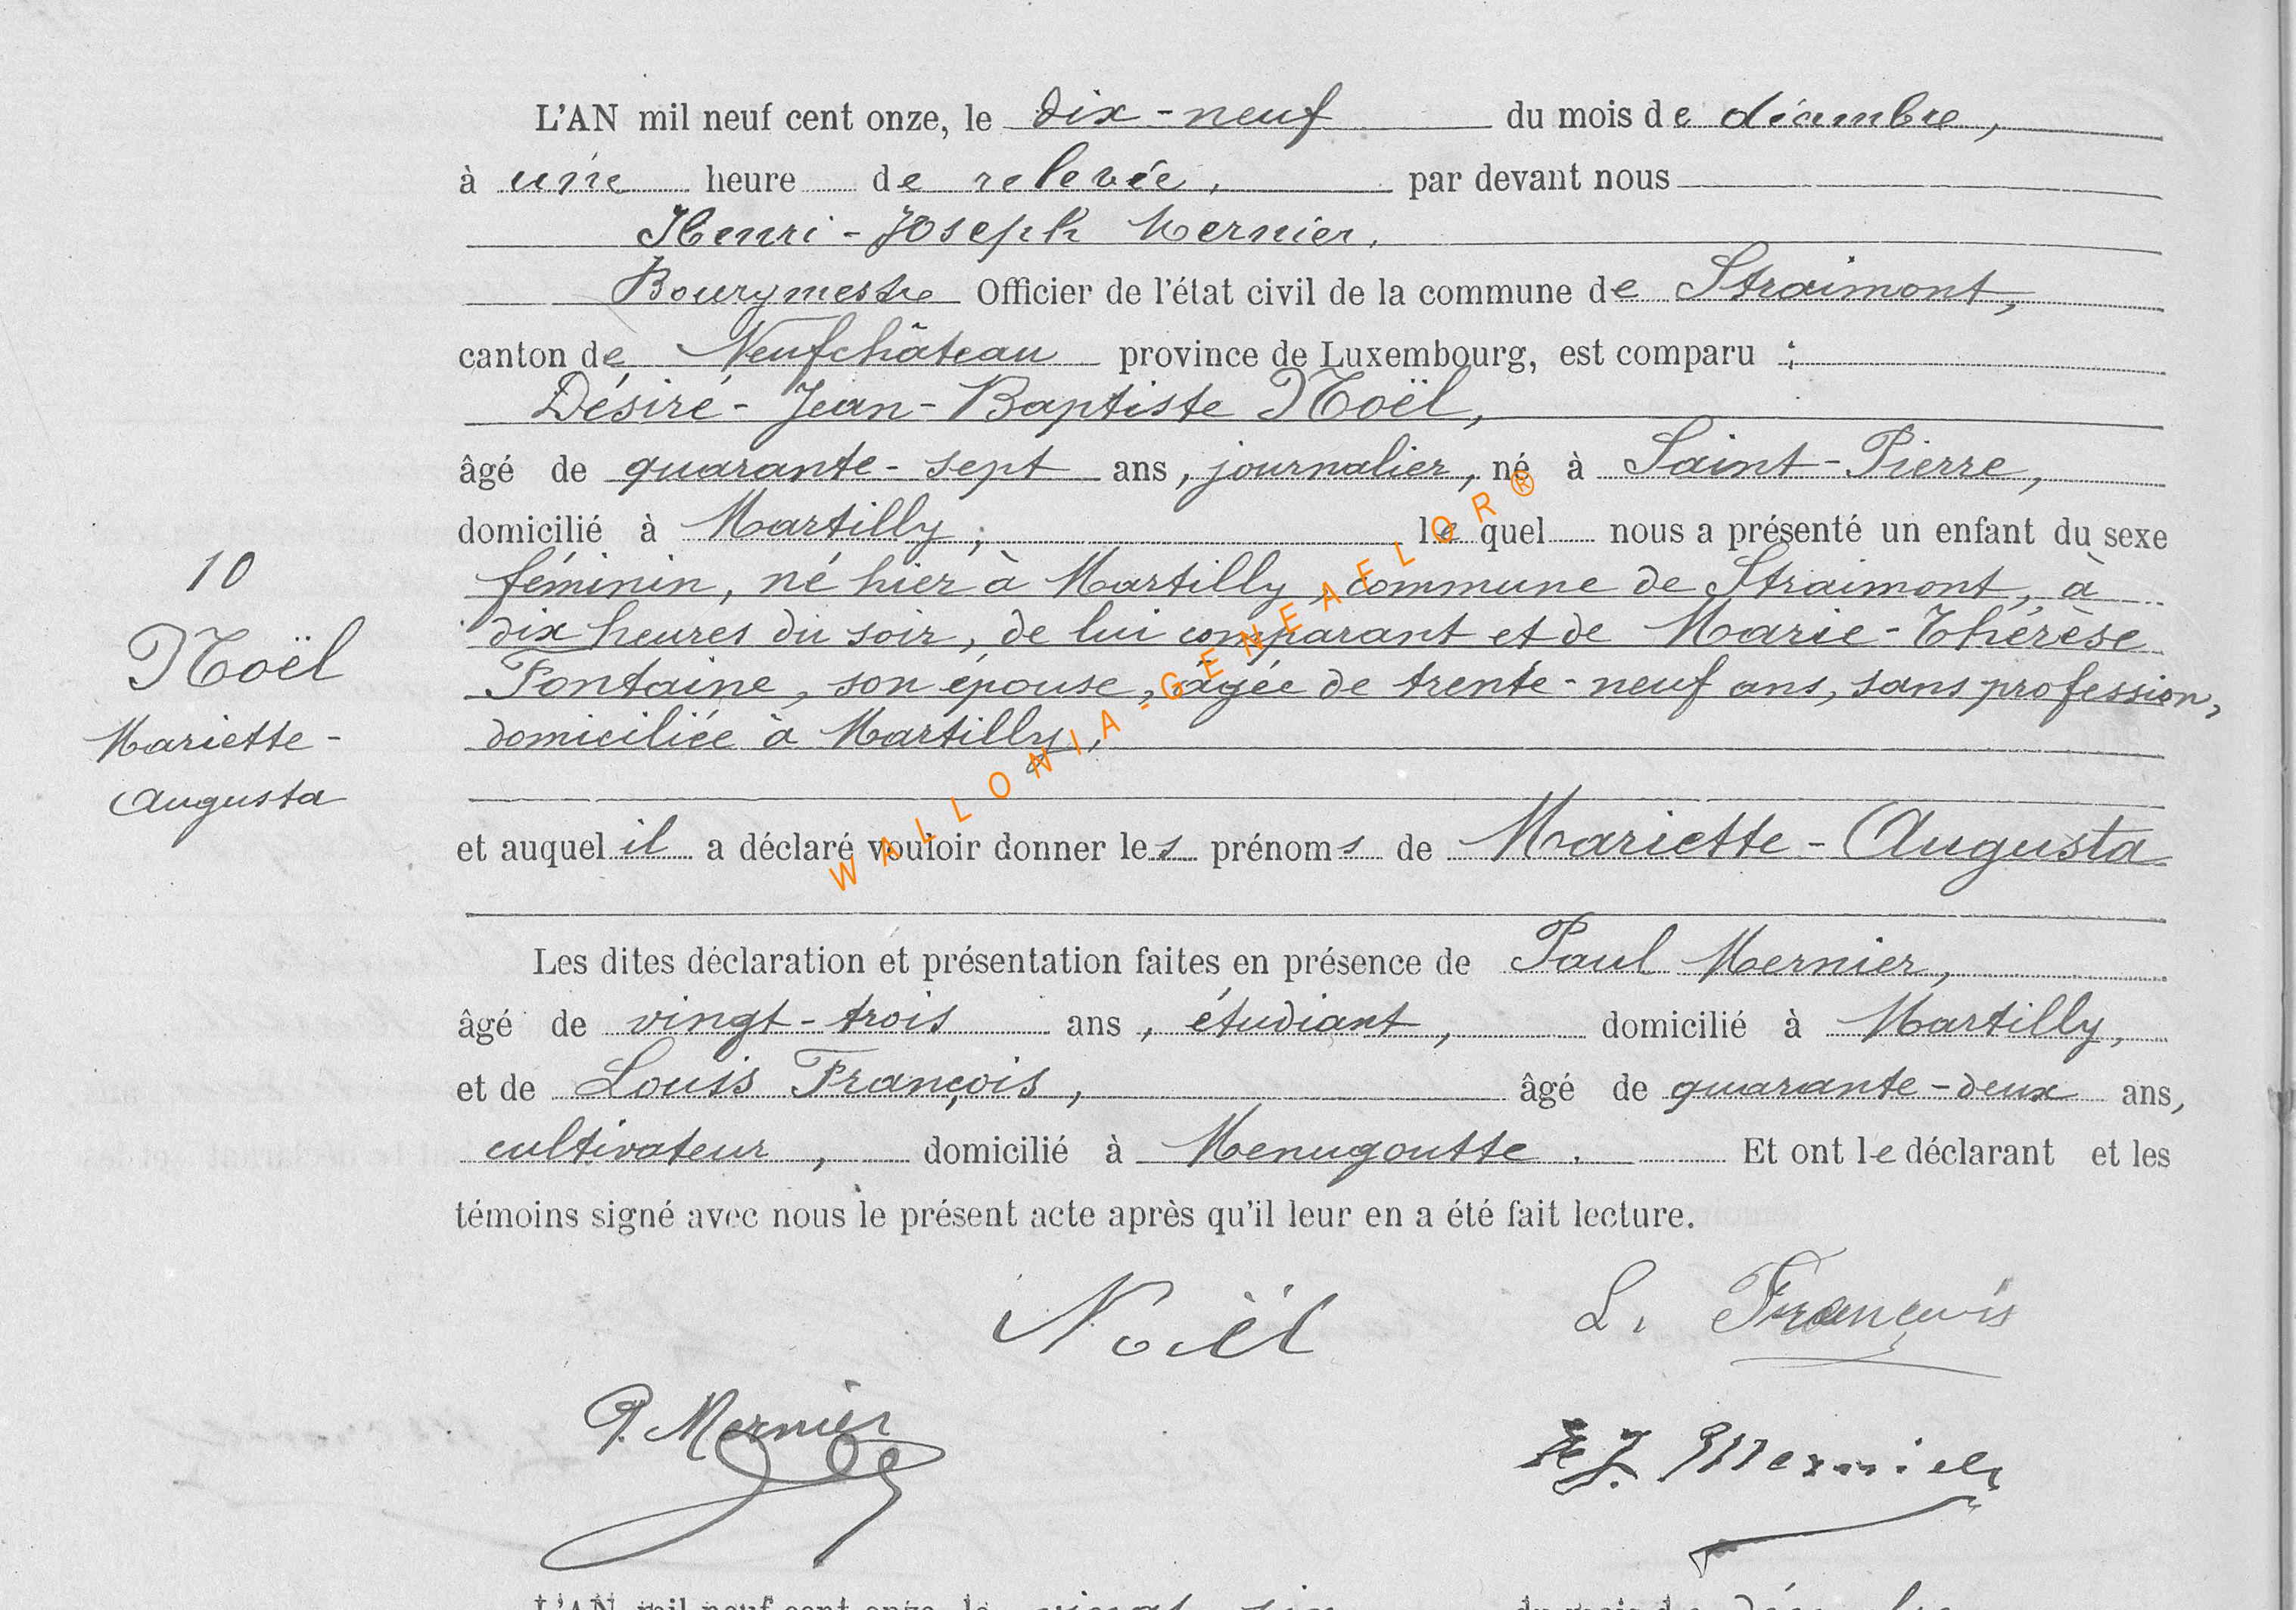 L'AN mil neuf cent onze, le dix-neuf du mois de décembre,
à une heure de relevée, par devant nous
Henri-Joseph Mernier,
Bourgmestre Officier de l'état civil de la commune de Straimont,
canton de Neufchâteau province de Luxembourg, est comparu :
Désiré-Jean-Baptiste Noël,
âgé de quarante-sept ans, journalier, né à Saint-Pierre,
domicilié à Martilly, lequel nous a présenté un enfant du sexe
féminin, né hier à Martilly, commune de Straimont, à
dix heures du soir, de lui comparant et de Marie-Thérèse
Fontaine, son épouse, âgée de trente-neuf ans, sans profession,
domiciliée à Martilly,
10
Noël
Mariette-
Augusta
et auquel il a déclaré vouloir donner les prénoms de Mariette-Augusta
Les dites déclaration et présentation faites en présence de Paul Mernier,
âgé de vingt-trois ans, étudiant, domicilié à Martilly,
et de Louis François, âgé de quarante-deux ans,
cultivateur, domicilié à Menugoutte. Et ont le déclarant et les
témoins signé avec nous le présent acte après qu'il leur en a été fait lecture.
Noël
L. François
P. Mernier
H J. Mernier
WALLONIA-GENEAFLOR®
L'AN mil neuf cent onze, le vingt-six du mois de décembre